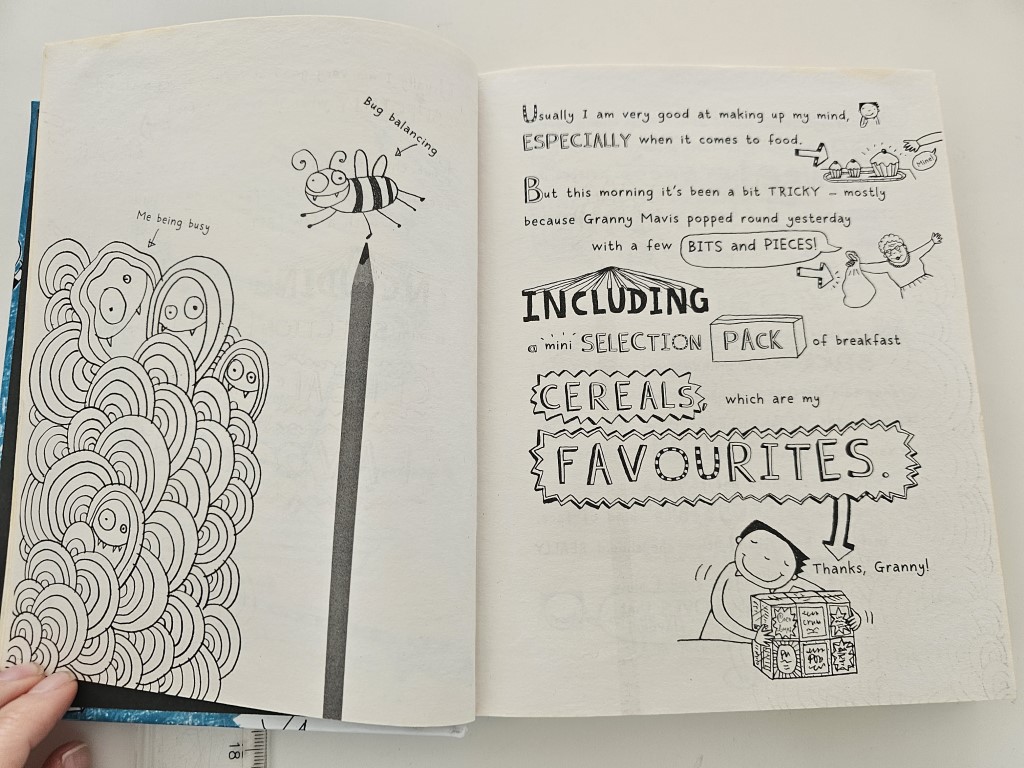 Bug balancing
Me being busy
Usually I am very good at making up my mind,
ESPECIALLY when it comes to food.
Mine!
But this morning it's been a bit TRICKY – mostly
because Granny Mavis popped round yesterday
with a few BITS and PIECES!
INCLUDING
a 'mini' SELECTION PACK of breakfast
CEREALS, which are my
FAVOURITES.
Thanks, Granny!
18